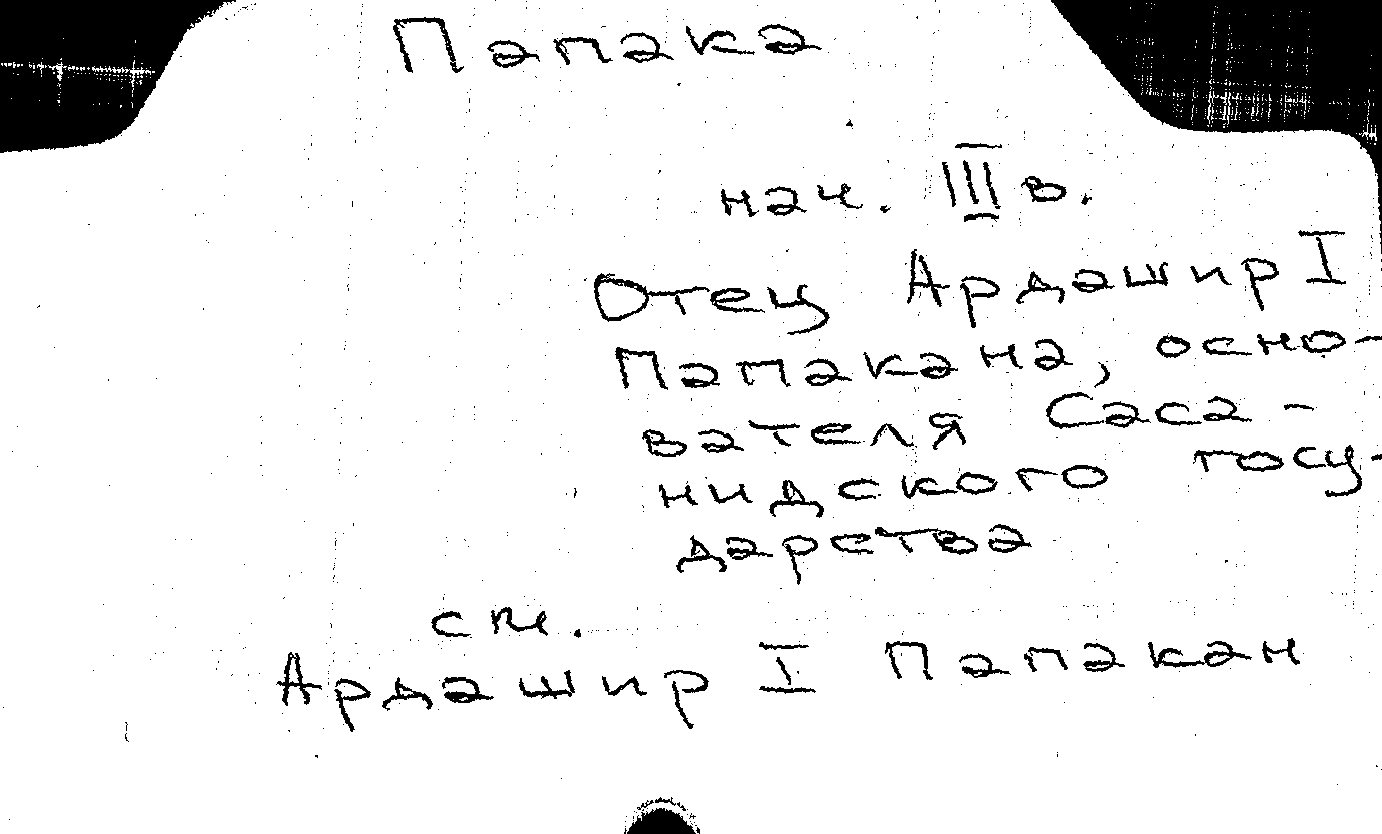 Папака
нач. III в.
Отец Ардашир I
Папакана, осно-
вателя Саса-
нидского госу-
дарства
см.
Ардашир I Папакан